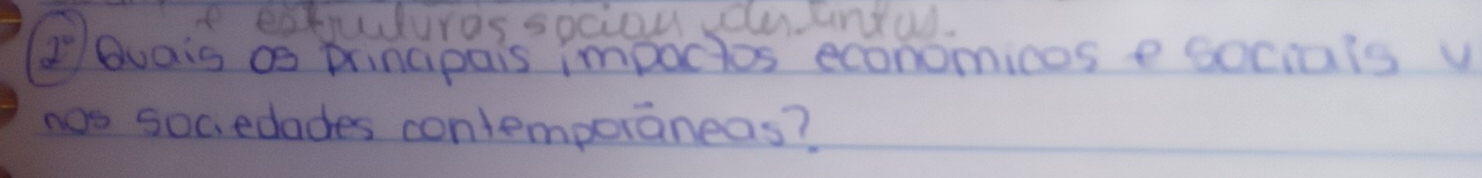 e estruturas sociais distintas.
2º Quais os principais impactos economicos e sociais v
nas sociedades contemporâneas?